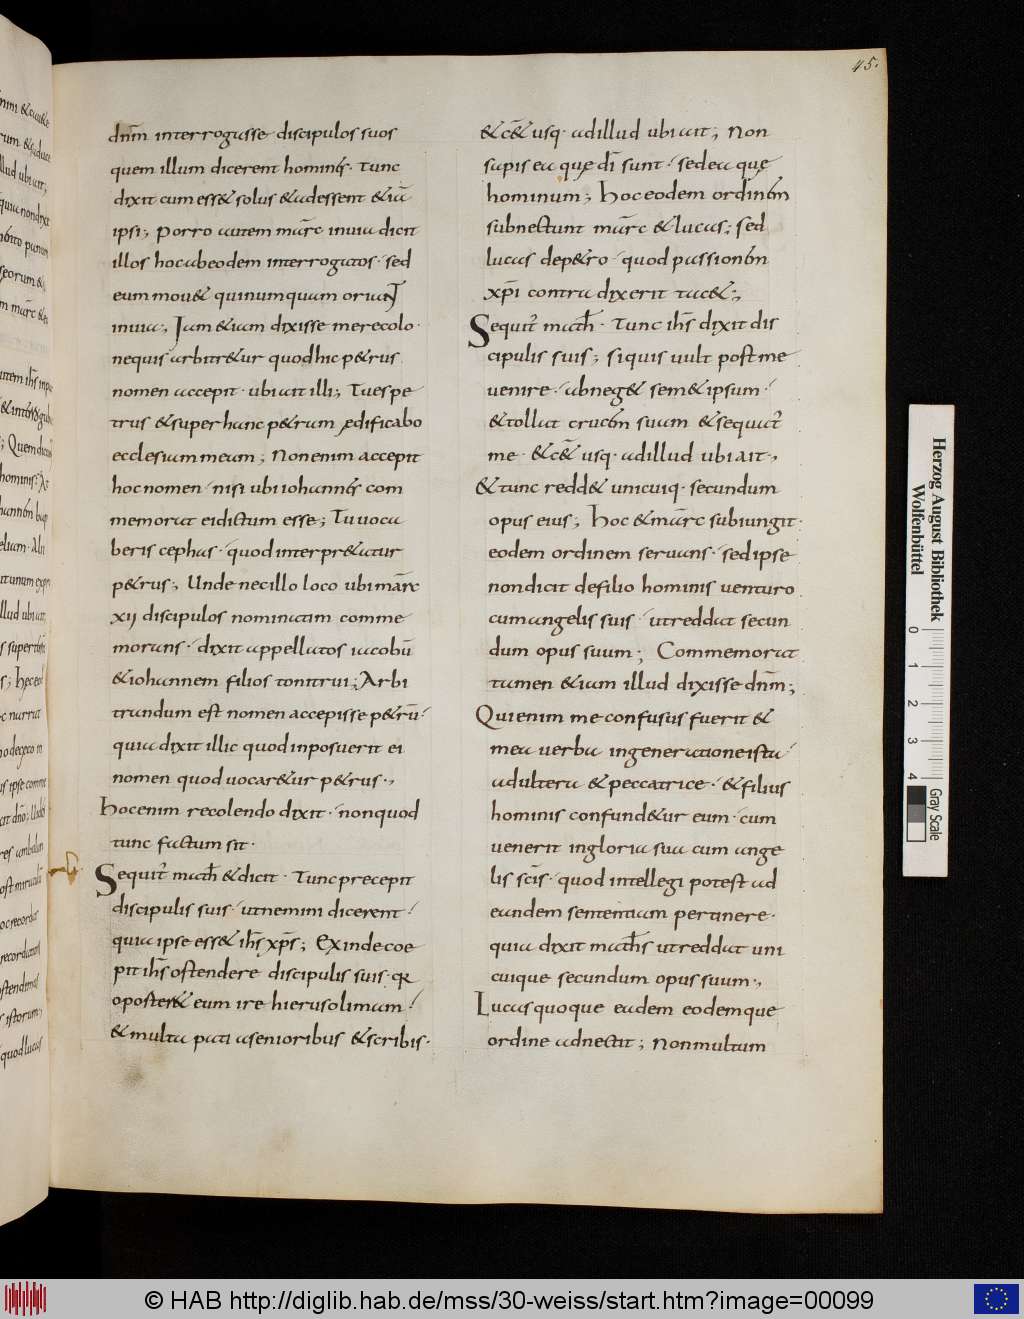 45.
dnm̄ interrogasse discipulos suos
quem illum dicerent homines · Tunc
dixit cum ess& solus & adessent & iā
ipsi; porro autem marc̄ inuia dicit
illos hoc ab eodem interrogatos · sed
eum mou& quinumquam oriat̄
inuia; Iam & iam dixisse me recolo ·
nequis arbitr&ur quod hic p&rus
nomen accepit · ubi ait illi; Tu es pe
trus & super hanc p&ram ędificabo
ecclesiam meam; Non enim accepit
hoc nomen · nisi ubi iohannes com
memorat ei dictum esse; Tu uoca
beris cephas · quod interpr&atur
p&rus; Unde nec illo loco ubi marc̄
xii discipulos nominatim comme
morans · dixit appellatos iacobū
& iohannem filios tonitrui; Arbi
trandum est nomen accepisse p&rū ·
quia dixit illic quod inposuerit ei
nomen quod uocar&ur p&rus ·,
hoc enim recolendo dixit · non quod
tunc factum sit ·
Sequit̄ math̄ & dicit · Tunc precepit
discipulis suis · ut nemini dicerent ·
quia ipse ess& ih̄s xp̄s; Exinde coe
pit ih̄s ostendere discipulis suis · qr
oposter& eum ire hierusolimam ·
& multa pati a senioribus & scribis ·
& c̄& usq · ad illud ubi ait; Non
sapis ea quę dī sunt · sed ea quę
hominum; hoc eodem ordinem
subnectunt marc̄ & lucas; sed
lucas dep&ro · quod passionem
xpī contra dixerit tac& ·,
Sequit̄ math̄ · Tunc ih̄s dixit dis
cipulis suis; si quis uult post me
uenire · abneg& sem&ipsum ·
& tollat crucem suam & sequat̄
me · & c̄& usq · ad illud ubi ait ·,
& tunc redd& unicuiq · secundum
opus eius; hoc & marc̄ subiungit ·
eodem ordinem seruans · sed ipse
non dicit de filio hominis venturo
cum angelis suis · ut reddat secun
dum opus suum; Commemorat
tamen & iam illud dixisse dnm̄;
Qui enim me confusus fuerit &
mea uerba in generatione ista ·
adultera & peccatrice · & filius
hominis confund&ur eum · cum
venerit in gloria sua cum ange
lis scīs · quod intellegi potest ad
eandem sententiam pertinere ·
quia dixit math̄s ut reddat uni
cuique secundum opus suum ·,
Lucas quoque eadem eodemque
ordine adnectit; Non multum
Herzog August Bibliothek
Wolfenbüttel
0 1 2 3 4
Gray Scale
© HAB http://diglib.hab.de/mss/30-weiss/start.htm?image=00099